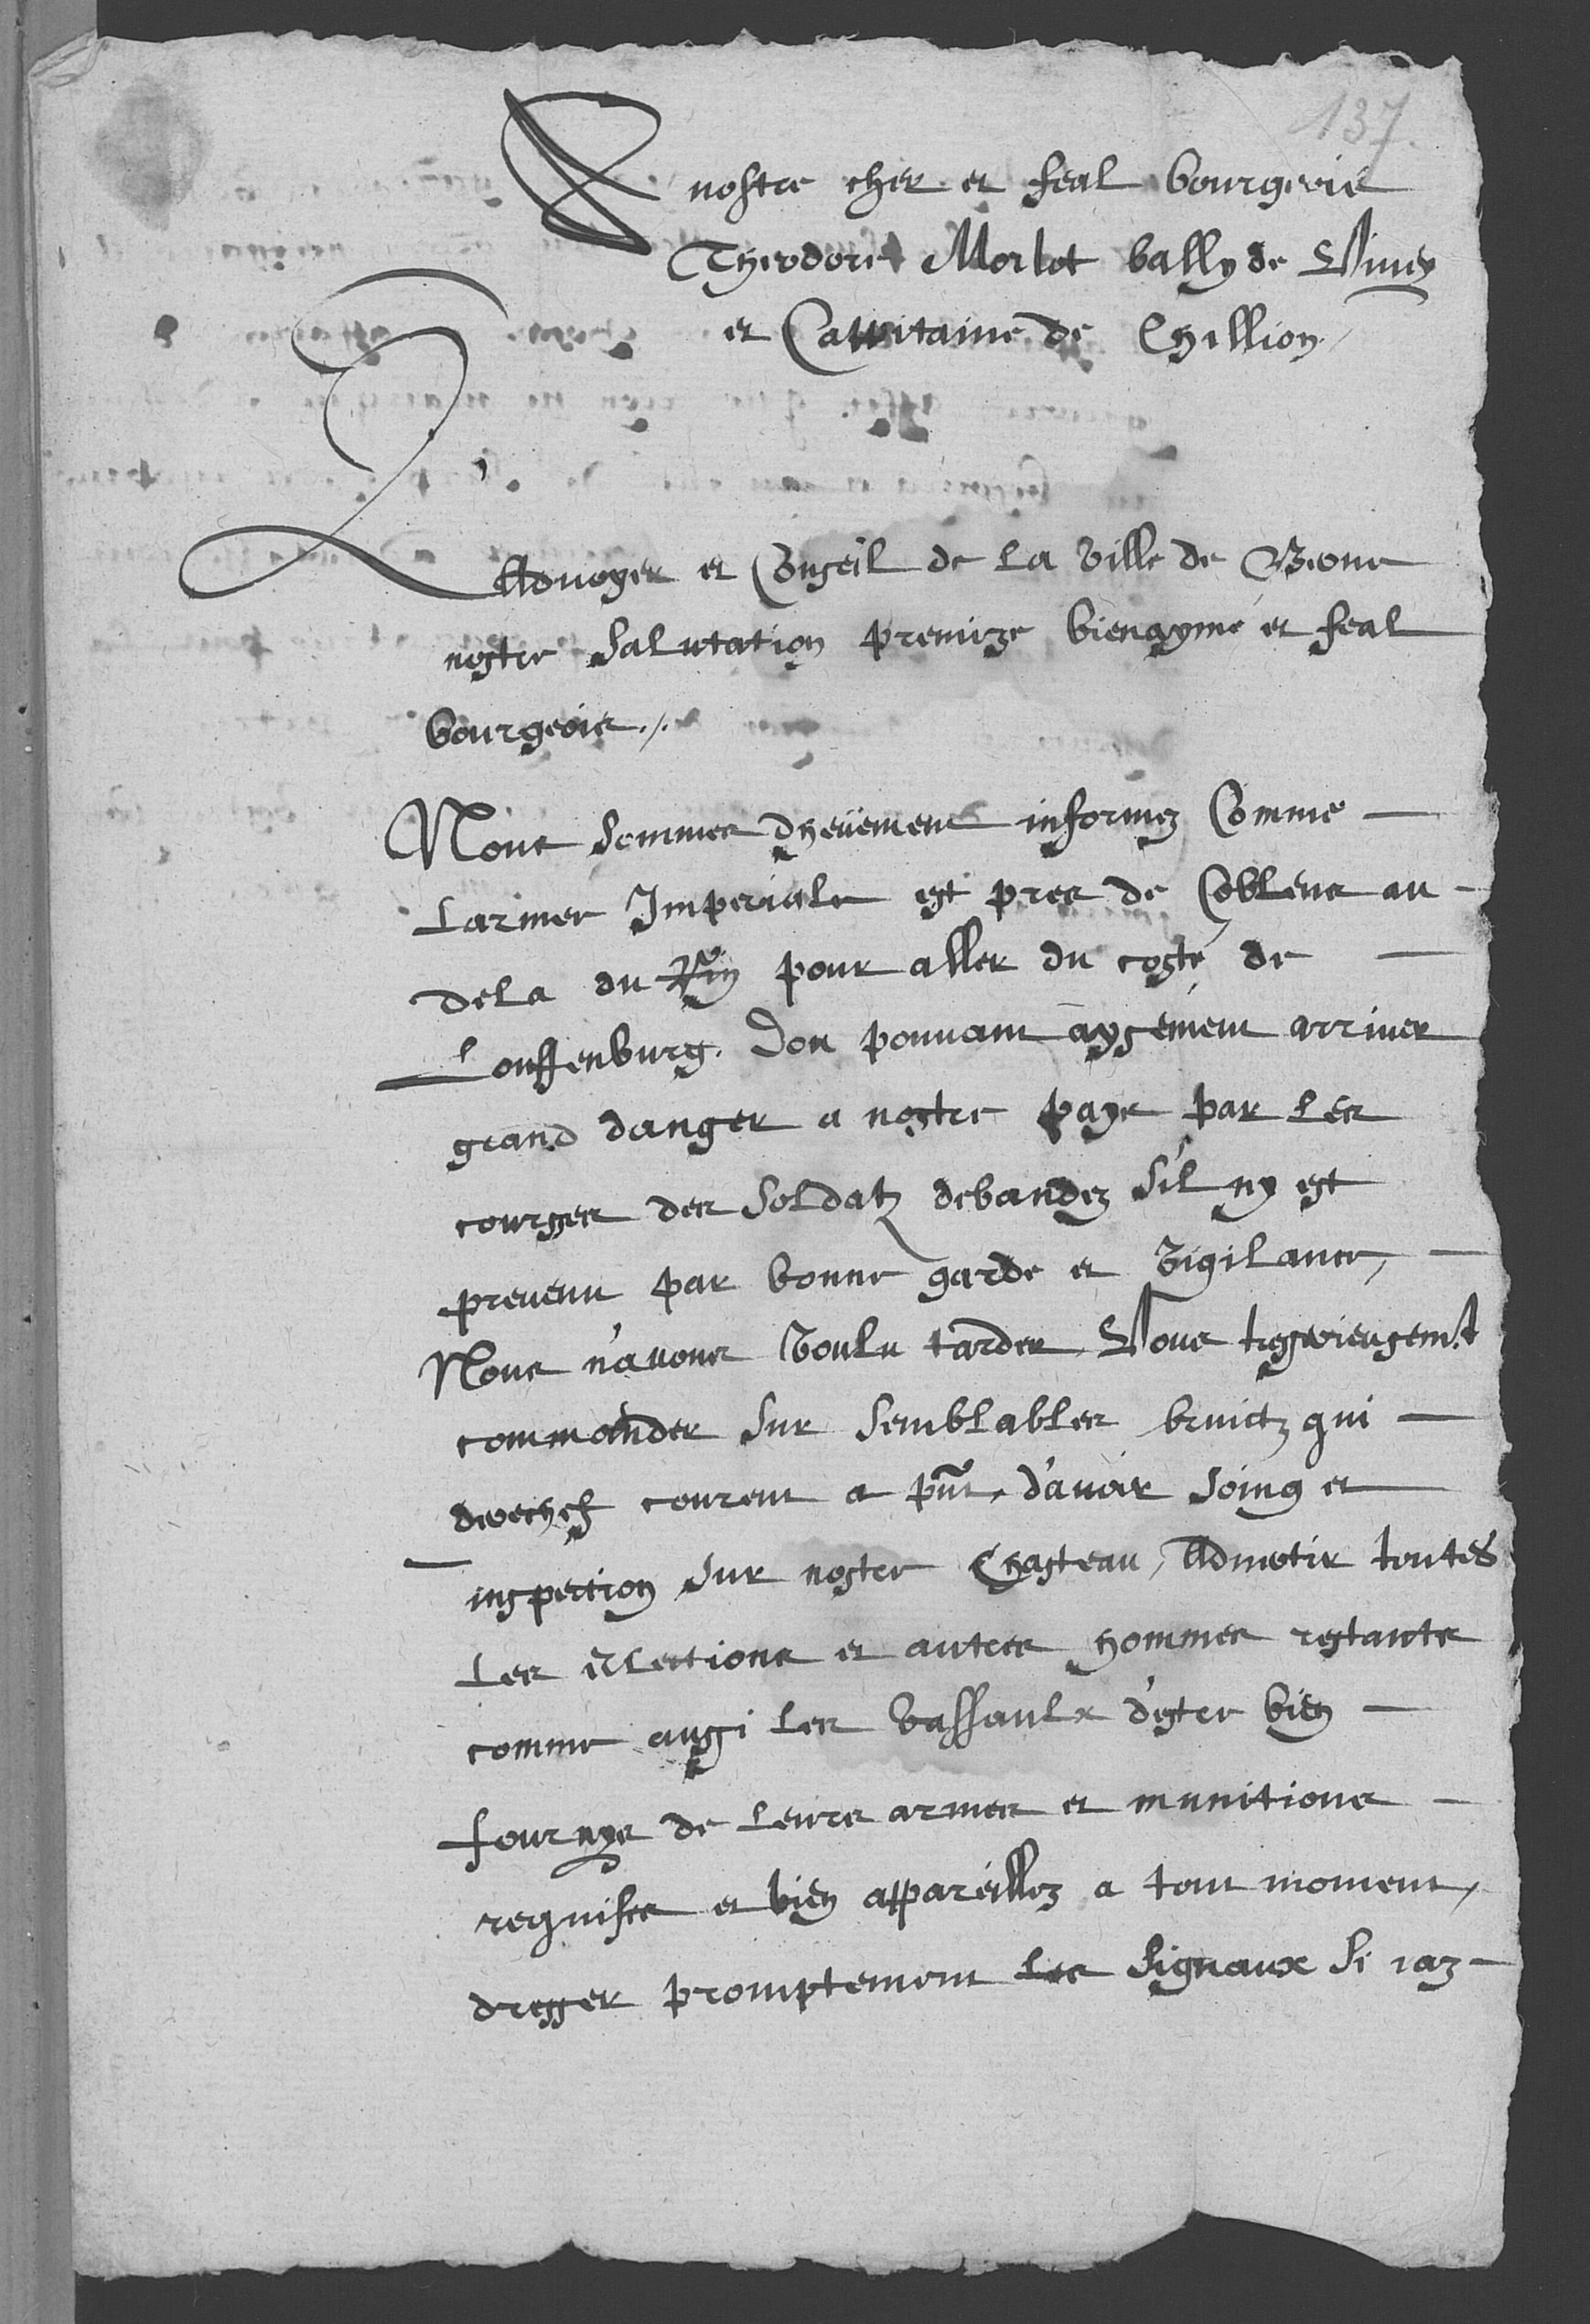 137.
A nostre cher et feal bourgeois
Theodore Morlot bally de Vivey
et Cappitaine de Chillion
L'Advoyer et Conseil de la ville de Berne
nostre salutation premise bienaymé et feal
bourgeois ./.
Nous sommes dheüement informez Comme —
Larmee Imperiale est pres de Coblens au -
dela du Rin pour aller du costé de —
Louffenburg. Don pouvant aysement arriver
grand danger a nostre pays par les
courses des soldatz debandez s'il ny est
prevenu par bonne garde et vigilance, —
Nous n'avons voulu tarder, Vous tresserieusem.t
commander sur semblables bruictz qui —
derechef courent a pnt, d'avoir soing et
inspection sur nostre Chasteau, Advertir toutes
Les Elections et autres hommes restants
comme aussi les vassaulx d'estre bien —
fournys de leurs armes et munitions —
requises et bien appareillez a tout moment,
dresser promptement les signaux si jaz -